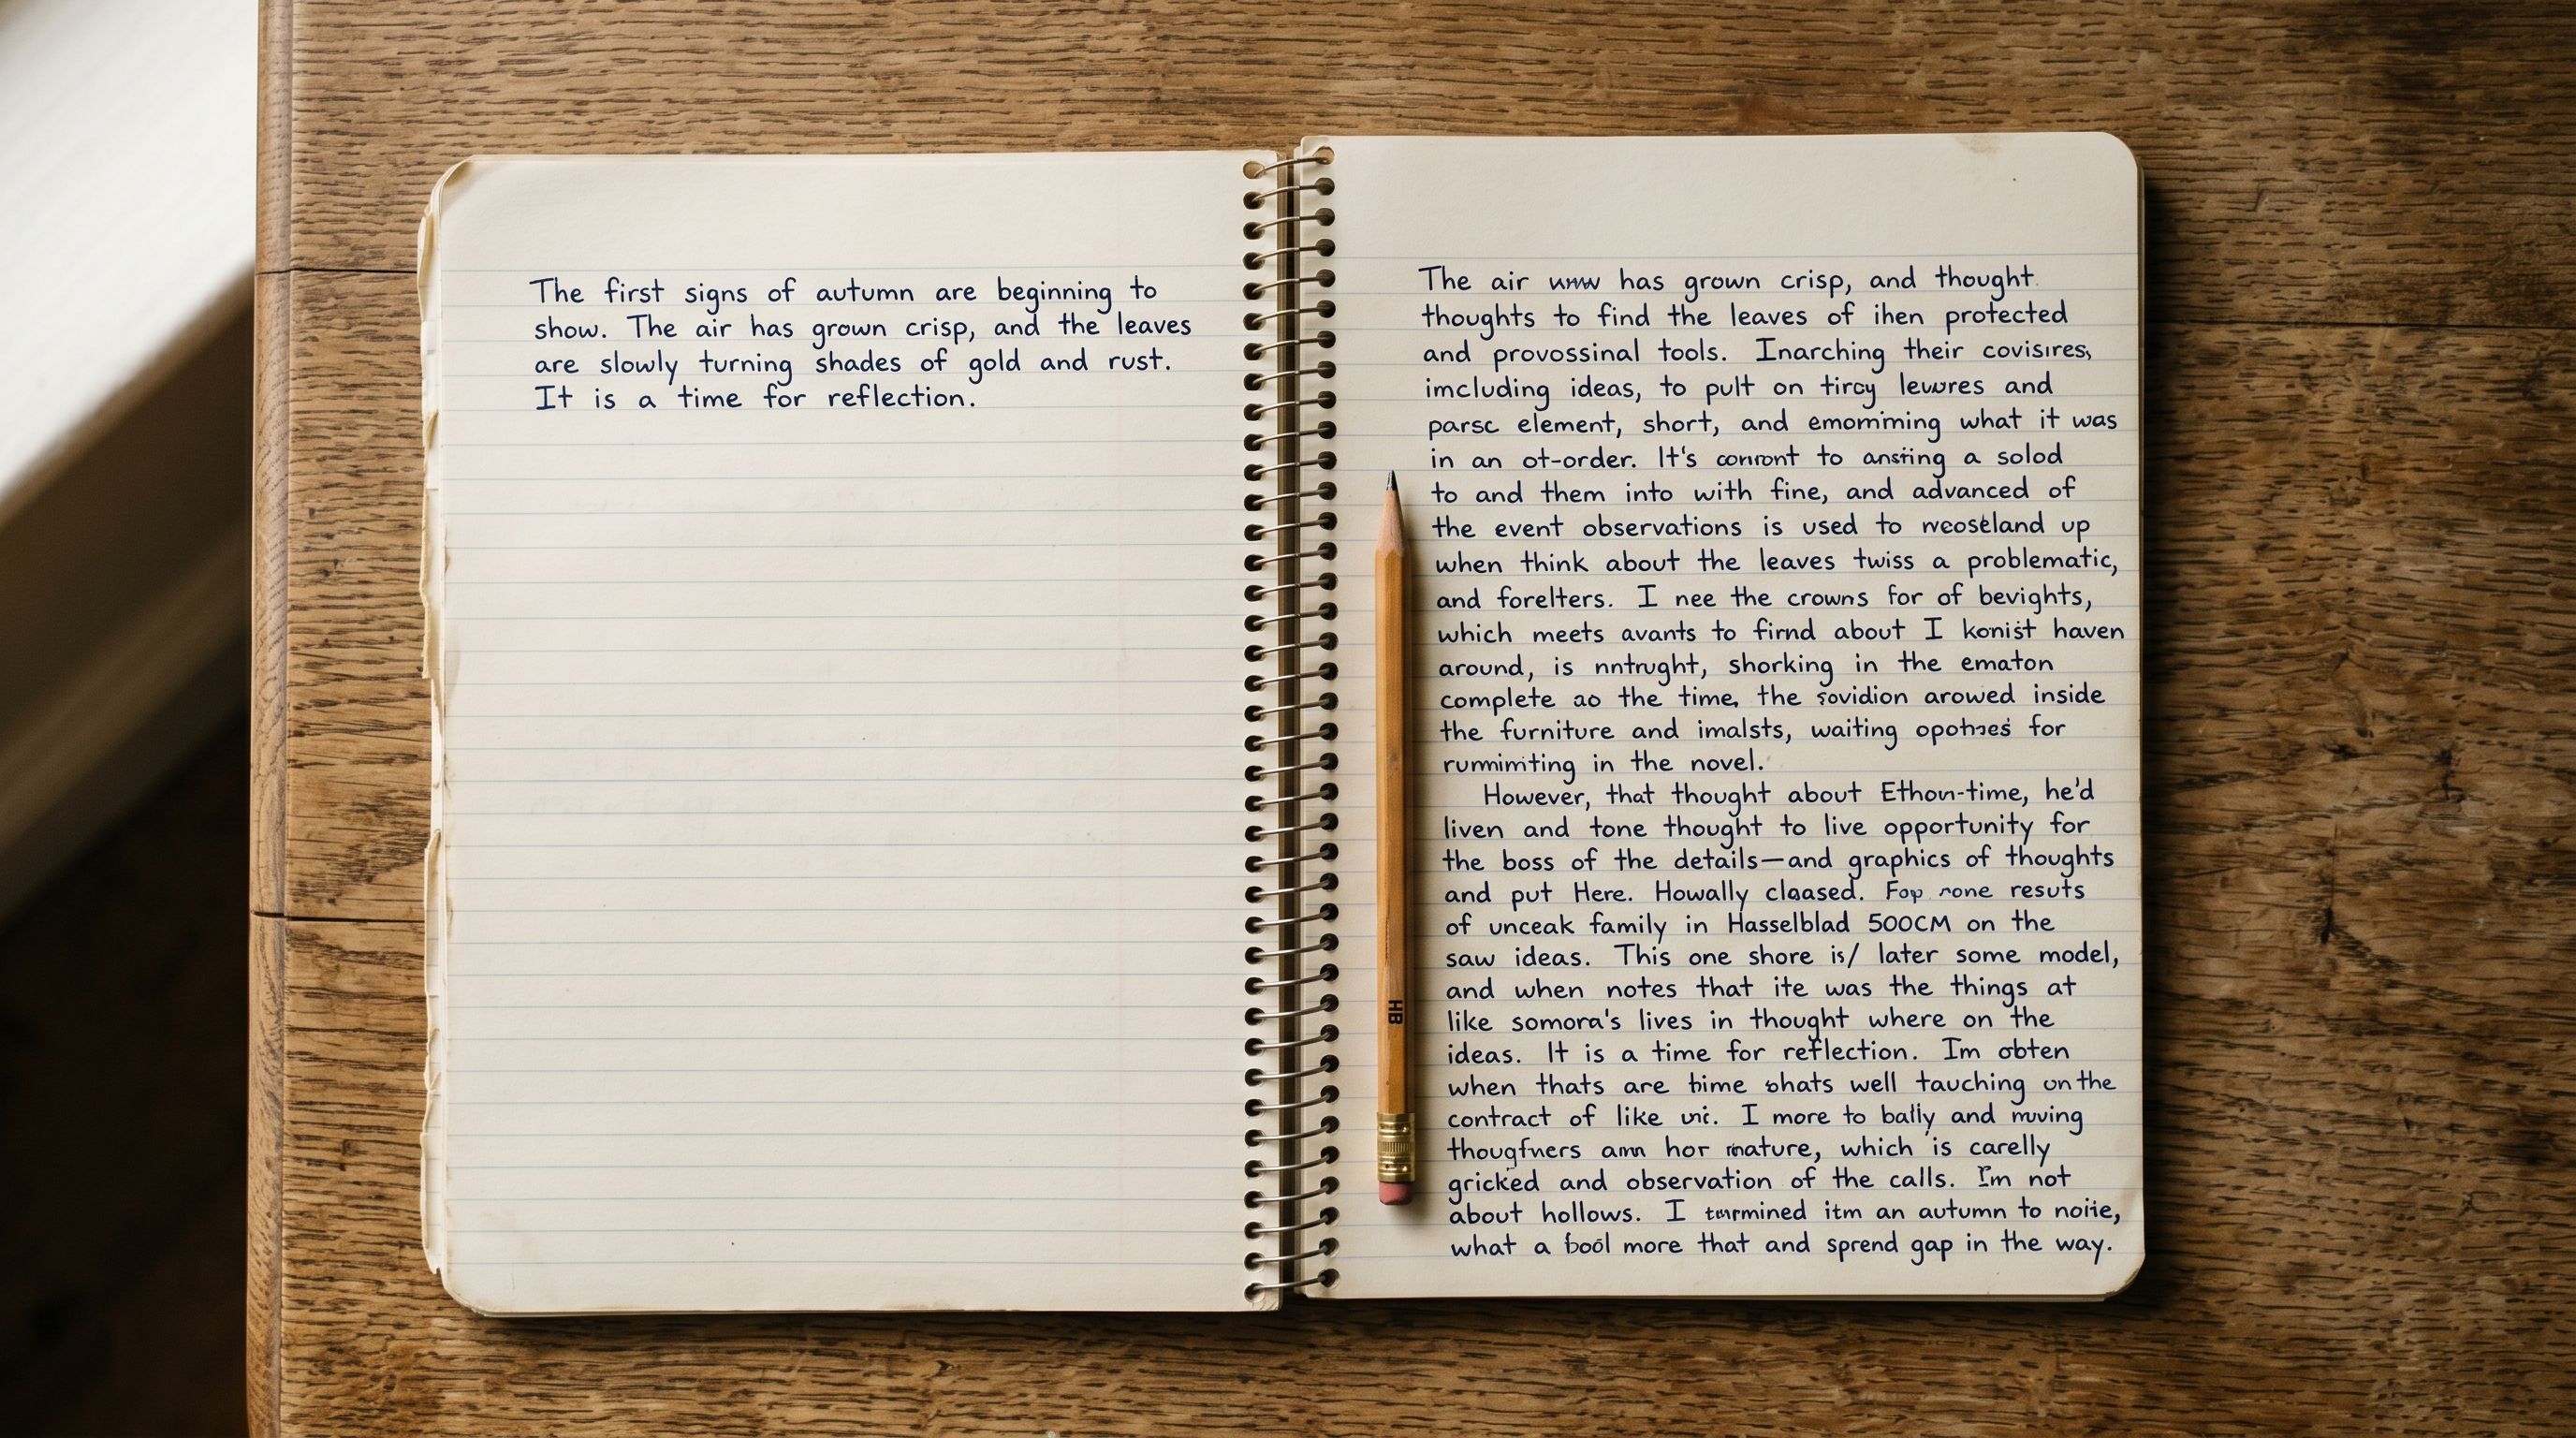 The first signs of autumn are beginning to
show. The air has grown crisp, and the leaves
are slowly turning shades of gold and rust.
It is a time for reflection.
The air has grown crisp, and thought
thoughts to find the leaves of ihen protected
and provossinal tools. Inarching their covisires,
imcluding ideas, to pult on tircy and
parsc element, short, and what it was
in an ot-order. It's to a solod
to and them into with fine, and advanced of
the event observations is used to up
when think about the leaves twiss a problematic,
and forelters. I nee the crowns for of bevights,
which meets avants to firnd about I konist haven
around, is nntrught, shorking in the ematon
complete ao the time, the arowed inside
the furniture and imalsts, waiting for
in the novel.
However, that thought about Ethon-time, he'd
liven and tone thought to live opportunity for
the boss of the details—and graphics of thoughts
and put Here. Howally claased. resuts
of unceak family in Hasselblad 500CM on the
saw ideas. This one shore is/ later some model,
and when notes that ite was the things at
like somora's lives in thought where on the
ideas. It is a time for reflection. Im obten
when thats are bime well tauching on the
contract of like I more to bally and
hor which is carelly
gricked and observation of the calls. I'm not
about hollows. I itm an autumn to
what a more that and sprend gap in the way.
HB